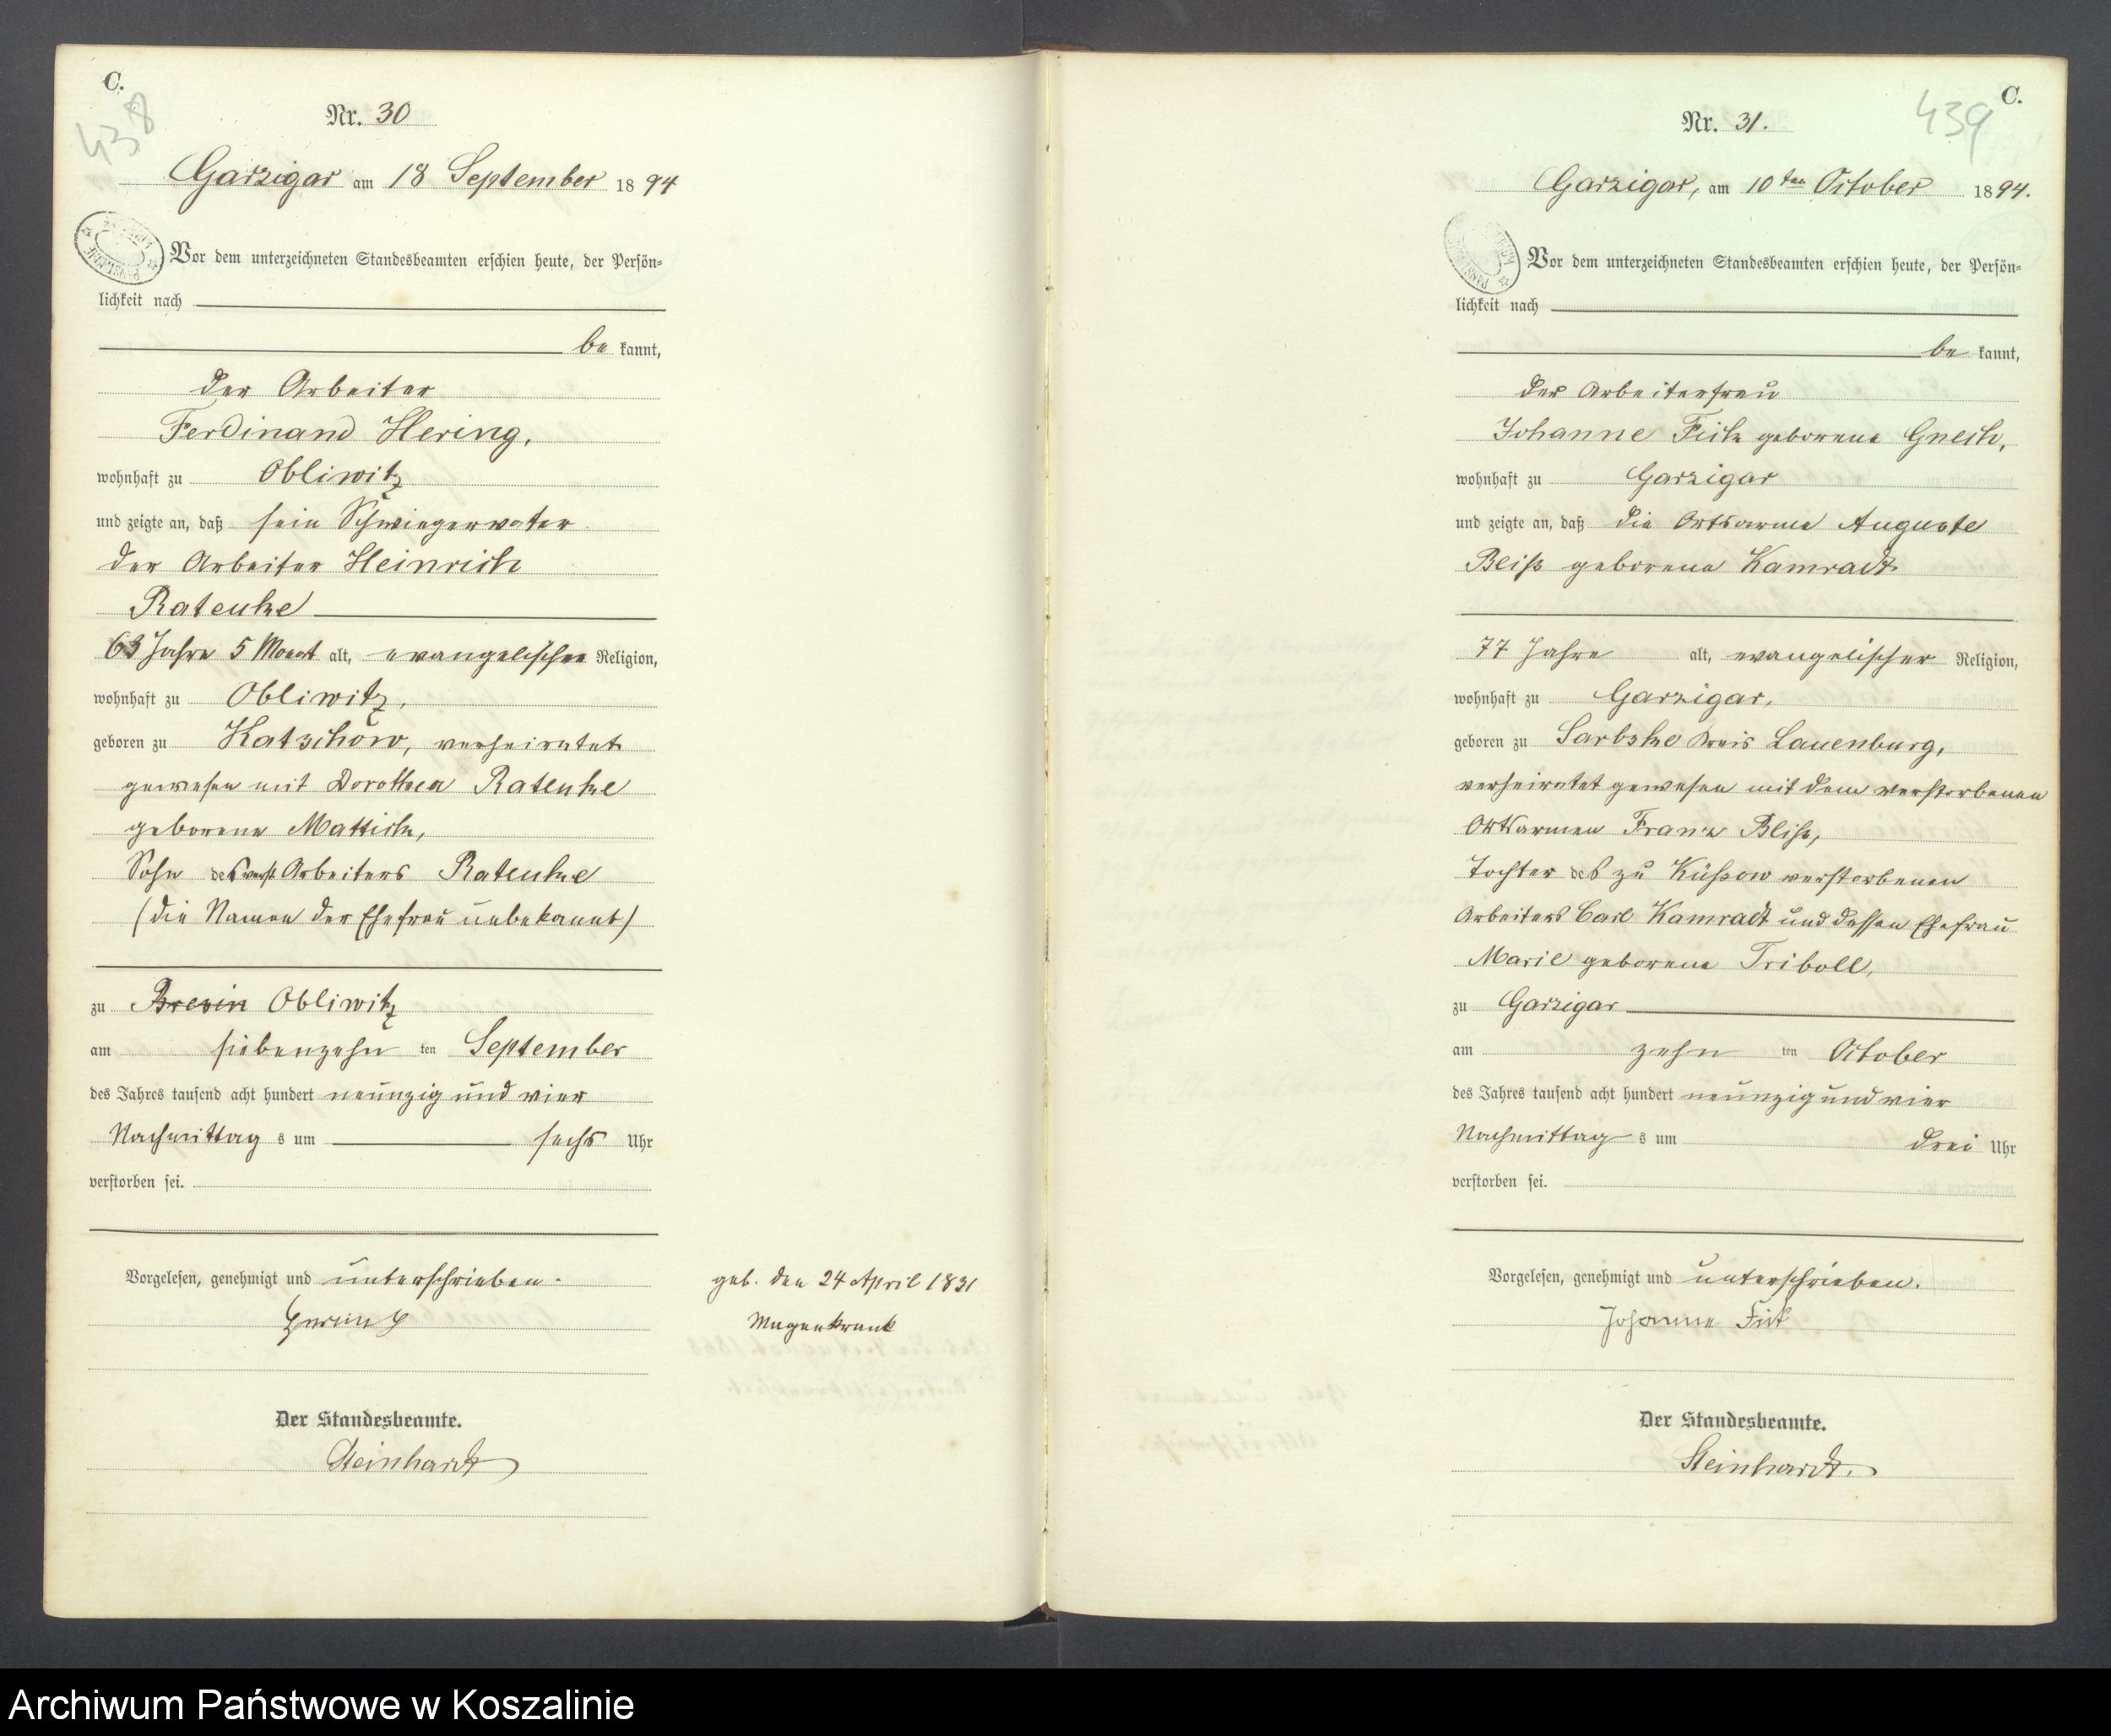 C.
438
Nr. 30
Garzigar am 18 September 1894
Vor dem unterzeichneten Standesbeamten erschien heute, der Persön-
lichkeit nach
be kannt,
der Arbeiter
Ferdinand Hering,
wohnhaft zu Obliwitz
und zeigte an, daß sein Schwiegervater
der Arbeiter Heinrich
Ratenke
63 Jahre 5 Monat alt, evangelischer Religion,
wohnhaft zu Obliwitz,
geboren zu Katschow, verheiratet
gewesen mit Dorothea Ratenke
geborene Mattick,
Sohn des verst Arbeiters Ratenke
(die Namen der Ehefrau unbekannt)
zu Bresin Obliwitz
am siebenzehn ten September
des Jahres tausend acht hundert neunzig und vier
Nachmittag s um sechs Uhr
verstorben sei.
Vorgelesen, genehmigt und unterschrieben.
Hering
geb. den 24 April 1831
Magenkrank
Der Standesbeamte.
Steinhardt
C.
439
Nr. 31.
Garzigar, am 10ten October 1894.
Vor dem unterzeichneten Standesbeamten erschien heute, der Persön-
lichkeit nach
be kannt,
der Arbeiterfrau
Johanne Fick geborene Gnech,
wohnhaft zu Garzigar
und zeigte an, daß die Ortsarme Auguste
Bliß geborene Kamradt
77 Jahre alt, evangelischer Religion,
wohnhaft zu Garzigar,
geboren zu Sarbske Kreis Lauenburg,
verheiratet gewesen mit dem verstorbenen
Ortsarmen Franz Bliß,
Tochter des zu Küssow verstorbenen
Arbeiters Carl Kamradt und dessen Ehefrau
Marie geborene Triboll,
zu Garzigar
am zehn ten October
des Jahres tausend acht hundert neunzig und vier
Nachmittag s um drei Uhr
verstorben sei.
Vorgelesen, genehmigt und unterschrieben.
Johanne Fik
Der Standesbeamte.
Steinhardt.
Archiwum Państwowe w Koszalinie